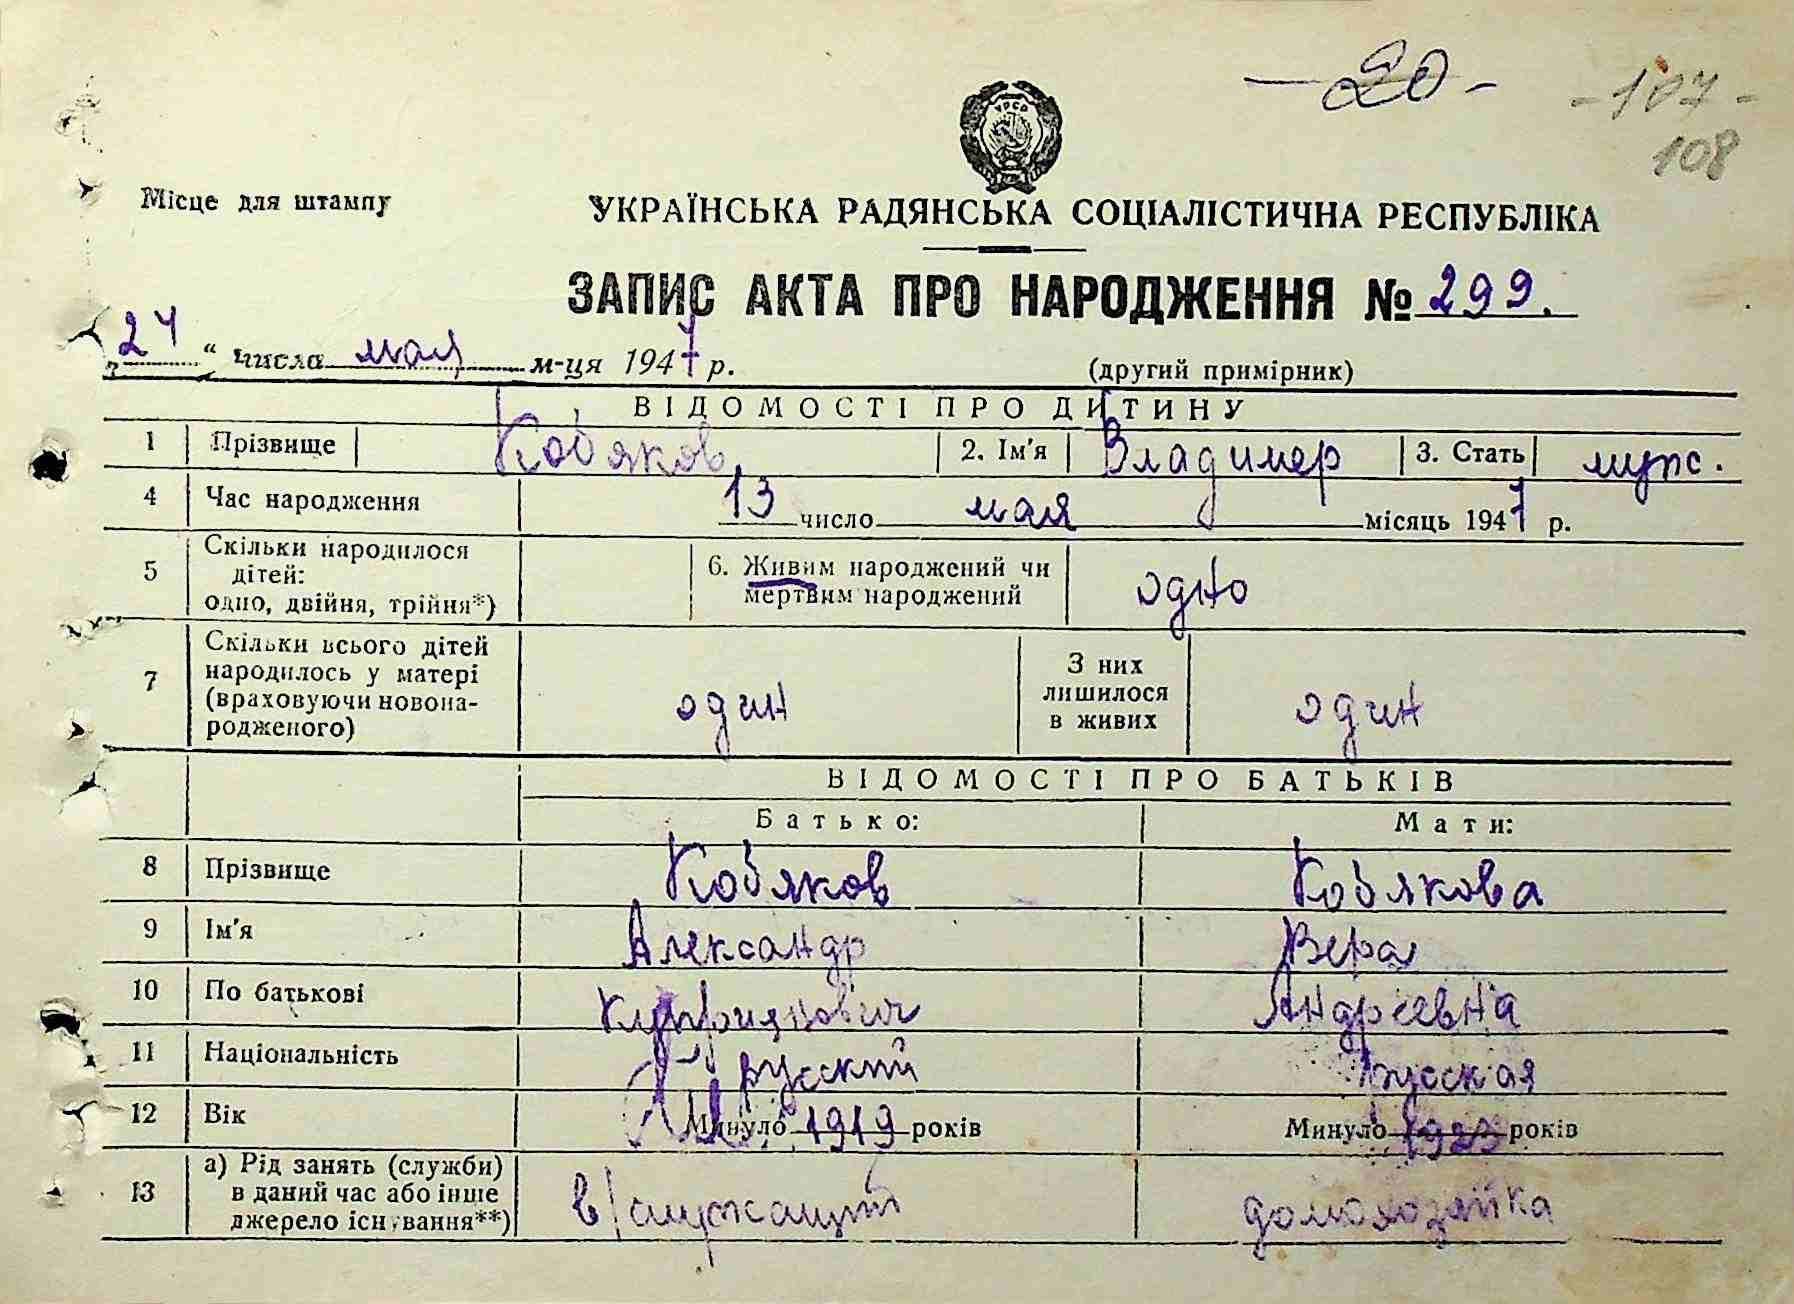 - 20 -
- 107 -
108
УРСР
Місце для штампу
УКРАЇНСЬКА РАДЯНСЬКА СОЦІАЛІСТИЧНА РЕСПУБЛІКА
ЗАПИС АКТА ПРО НАРОДЖЕННЯ № 299.
„24“ числа мая м-ця 1947 р.
(другий примірник)
ВІДОМОСТІ ПРО ДИТИНУ
1 Прізвище Кобяков, 2. Ім'я Владимер 3. Стать муж.
4 Час народження 13 число мая місяць 1947 р.
5 Скільки народилося дітей: одно, двійня, трійня*) 6. Живим народжений чи мертвим народжений одно
7 Скільки всього дітей народилось у матері (враховуючи новонародженого) один З них лишилося в живих один
ВІДОМОСТІ ПРО БАТЬКІВ
Батько: Мати:
8 Прізвище Кобяков Кобякова
9 Ім'я Александр Вера
10 По батькові Куприянович Андреевна
11 Національність русский русская
12 Вік Минуло 1919 років Минуло 1923 років
13 а) Рід занять (служби) в даний час або інше джерело існування**) в/служащий домохозайка